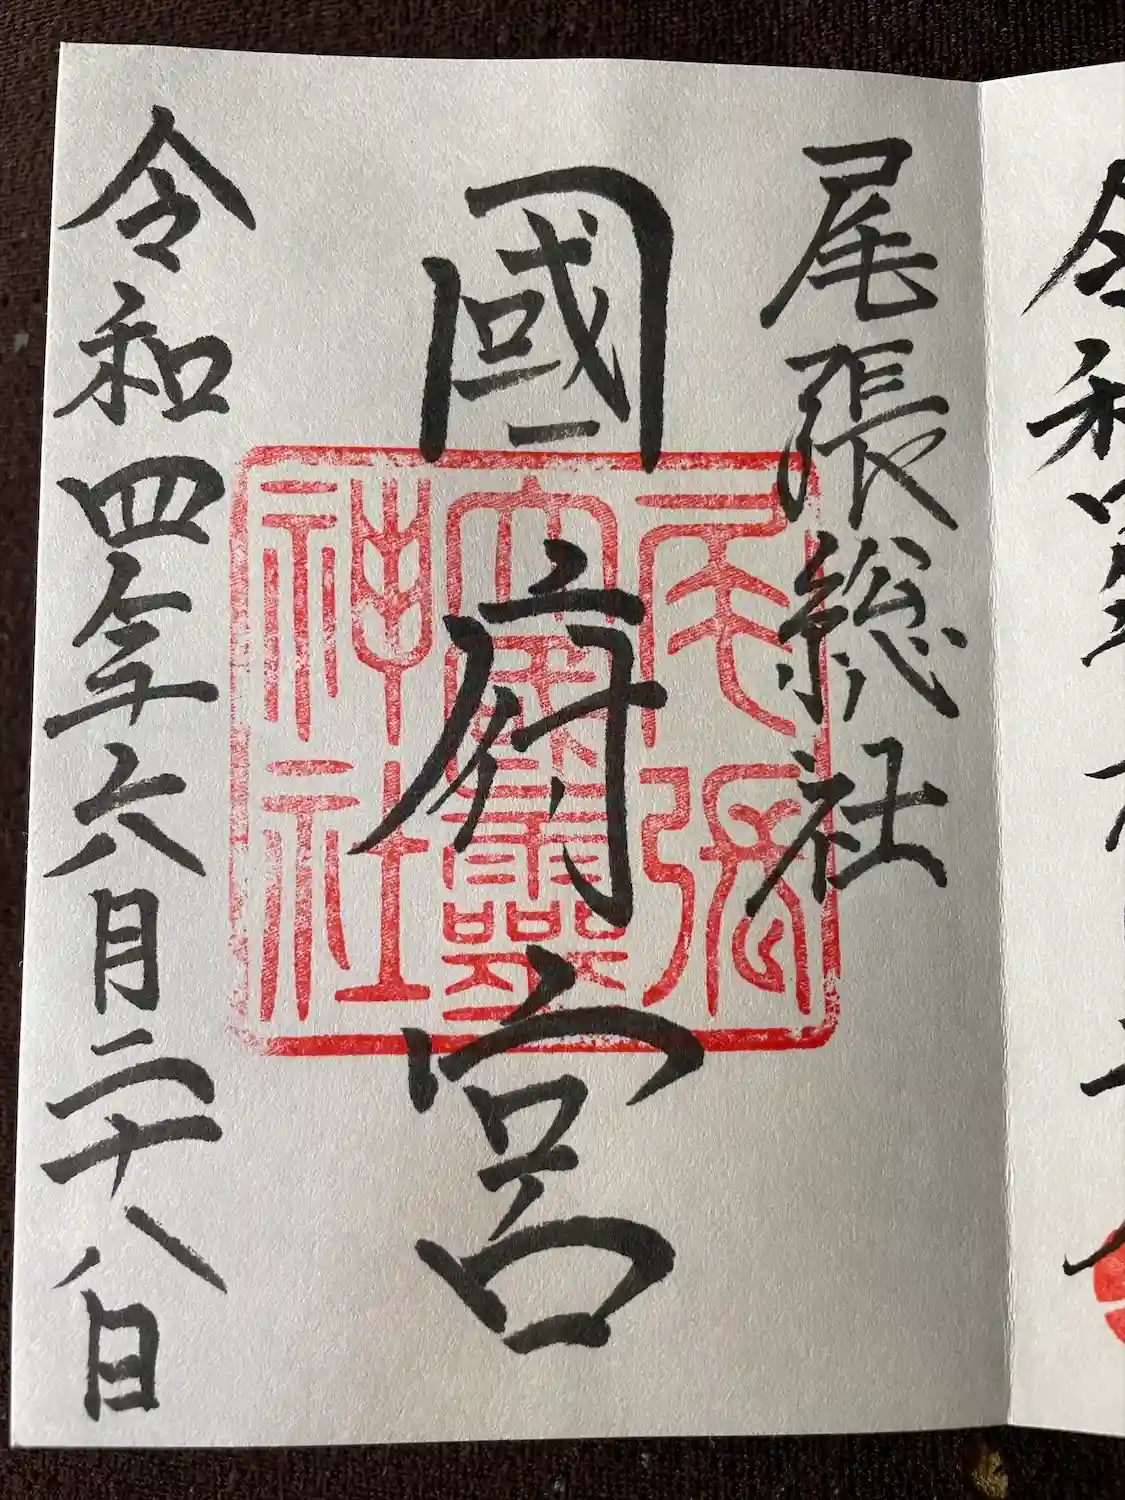 尾張総社
國府宮
令和四年六月二十八日
尾張
大國靈
神社